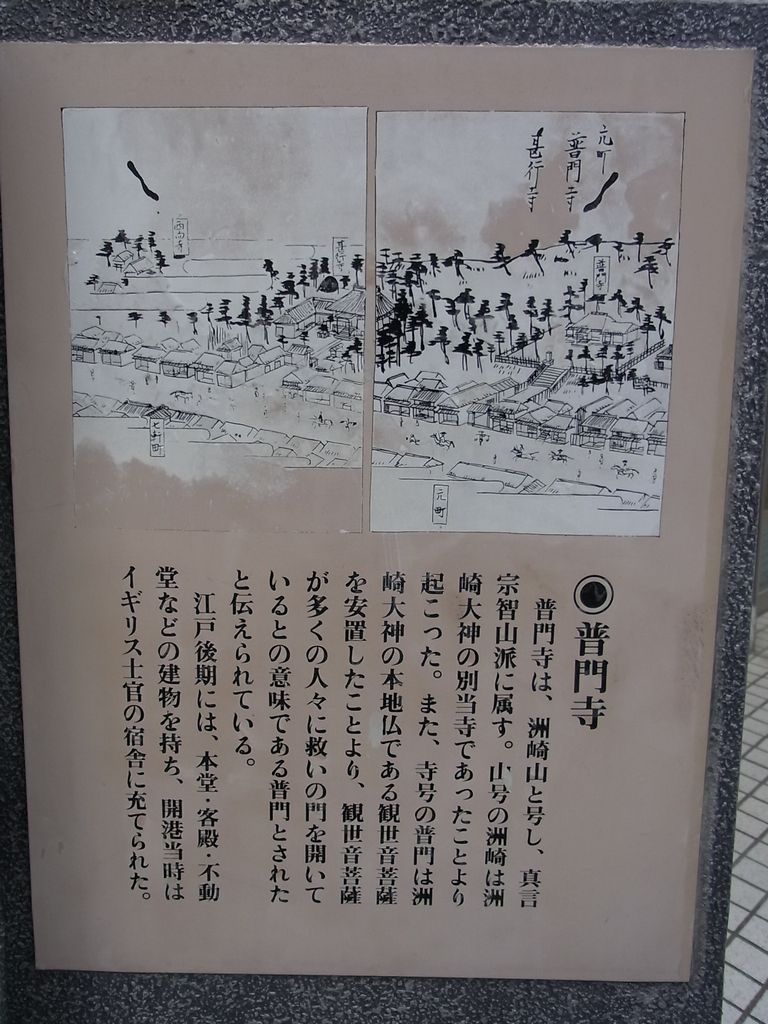 元町
普門寺
甚行寺
普門寺
元町
甚行寺
西向寺
七軒町
◉普門寺
普門寺は、洲崎山と号し、真言
宗智山派に属す。山号の洲崎は洲
崎大神の別当寺であったことより
起こった。また、寺号の普門は洲
崎大神の本地仏である観世音菩薩
を安置したことより、観世音菩薩
が多くの人々に救いの門を開いて
いるとの意味である普門とされた
と伝えられている。
江戸後期には、本堂・客殿・不動
堂などの建物を持ち、開港当時は
イギリス士官の宿舎に充てられた。